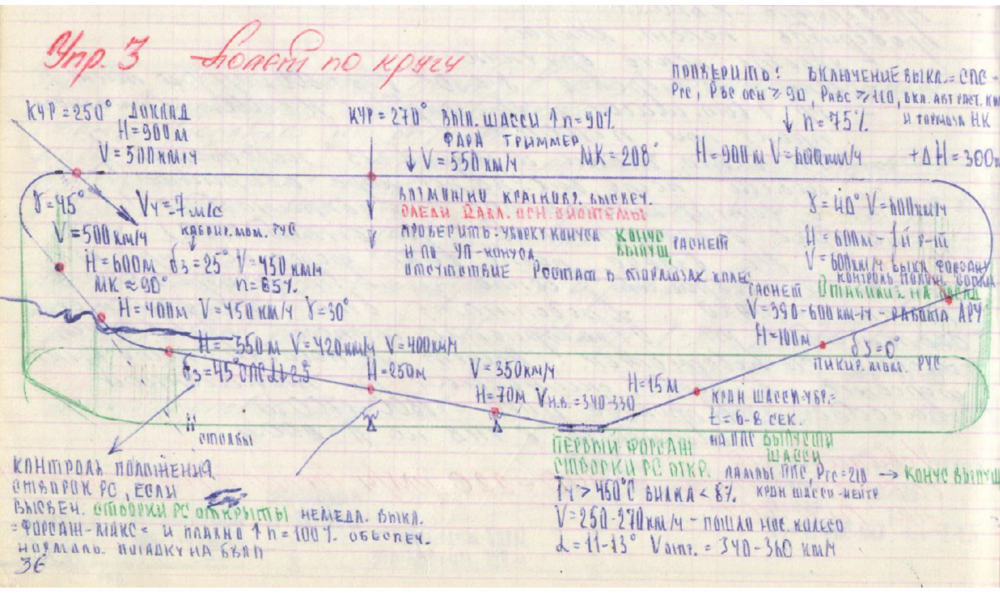 Упр. 3 Полет по кругу
ПРОВЕРИТЬ: ВКЛЮЧЕНИЕ ВЫКЛ. = СПС -
Ргс, Рвс осн ≥ 90, Равс ≥ 110, ВКЛ. АВТ РАСТ.
↓ n = 75% И ТОРМОЗА НК
КУР = 250° ДОКЛАД
H = 900 м
V = 500 км/ч
КУР = 270° ВЫП. ШАССИ ↑ n = 90%
ФАРА ТРИММЕР
↓ V = 550 км/ч МК = 208°
H = 900 м V = 600 км/ч + ΔH = 300
γ = 45° Vy = 7 м/с
V = 500 км/ч РУС
H = 600 м δз = 25° V = 450 км/ч
МК ≈ 90° n = 85%
H = 400 м V = 450 км/ч γ = 30°
ВОЗМОЖНО КРАТКОВР. ВЫСВЕЧ.
СЛЕДИ ДАВЛ. ОСН.
ПРОВЕРИТЬ: УБОРКУ КОНУСА КОНУС ВЫПУЩ ГАСНЕТ
И ПО УП - КОНУСА
ОТСУТСТВИЕ В ТОРМОЗАХ КОЛЕС
γ = 40° V = 600 км/ч
H = 600 м - 1й Р-Т
V = 600 км/ч ВЫКЛ ФОРСАЖ
КОНТРОЛЬ
ГАСНЕТ СТАБИЛИЗ. НА
V = 390-600 км/ч - РАБОТА АРУ
H = 100 м δз = 0°
ПИКИР. МОМ. РУС
H = 350 м V = 420 км/ч V = 400 км/ч
δз = 45°
H = 250 м V = 350 км/ч
H = 70 м Vн.в. = 340-330
H = 15 м
КРАН ШАССИ - УБР. =
t = 6-8 СЕК.
НА ППС ВЫПУСТИ
ШАССИ
СТОЛБЫ
КОНТРОЛЬ ПОЛОЖЕНИЯ
СТВОРОК РС, ЕСЛИ
ВЫСВЕЧ. СТВОРКИ РС ОТКРЫТЫ НЕМЕДЛ. ВЫКЛ.
= ФОРСАЖ - МАКС = И ПЛАВНО ↑ n = 100% ОБЕСПЕЧ.
НОРМАЛЬ. ПОСАДКУ НА
36
ПЕРВЫЙ ФОРСАЖ
СТВОРКИ РС ОТКР. ЛАМПЫ ППС, Ргс = 210 → КОНУС ВЫПУЩ
Т4 > 450°С ВИЛКА < 8% КРАН ШАССИ - НЕЙТР
V = 250-270 км/ч - ПОШЛО НОС. КОЛЕСО
α = 11-13° Vотр. = 340-360 км/ч